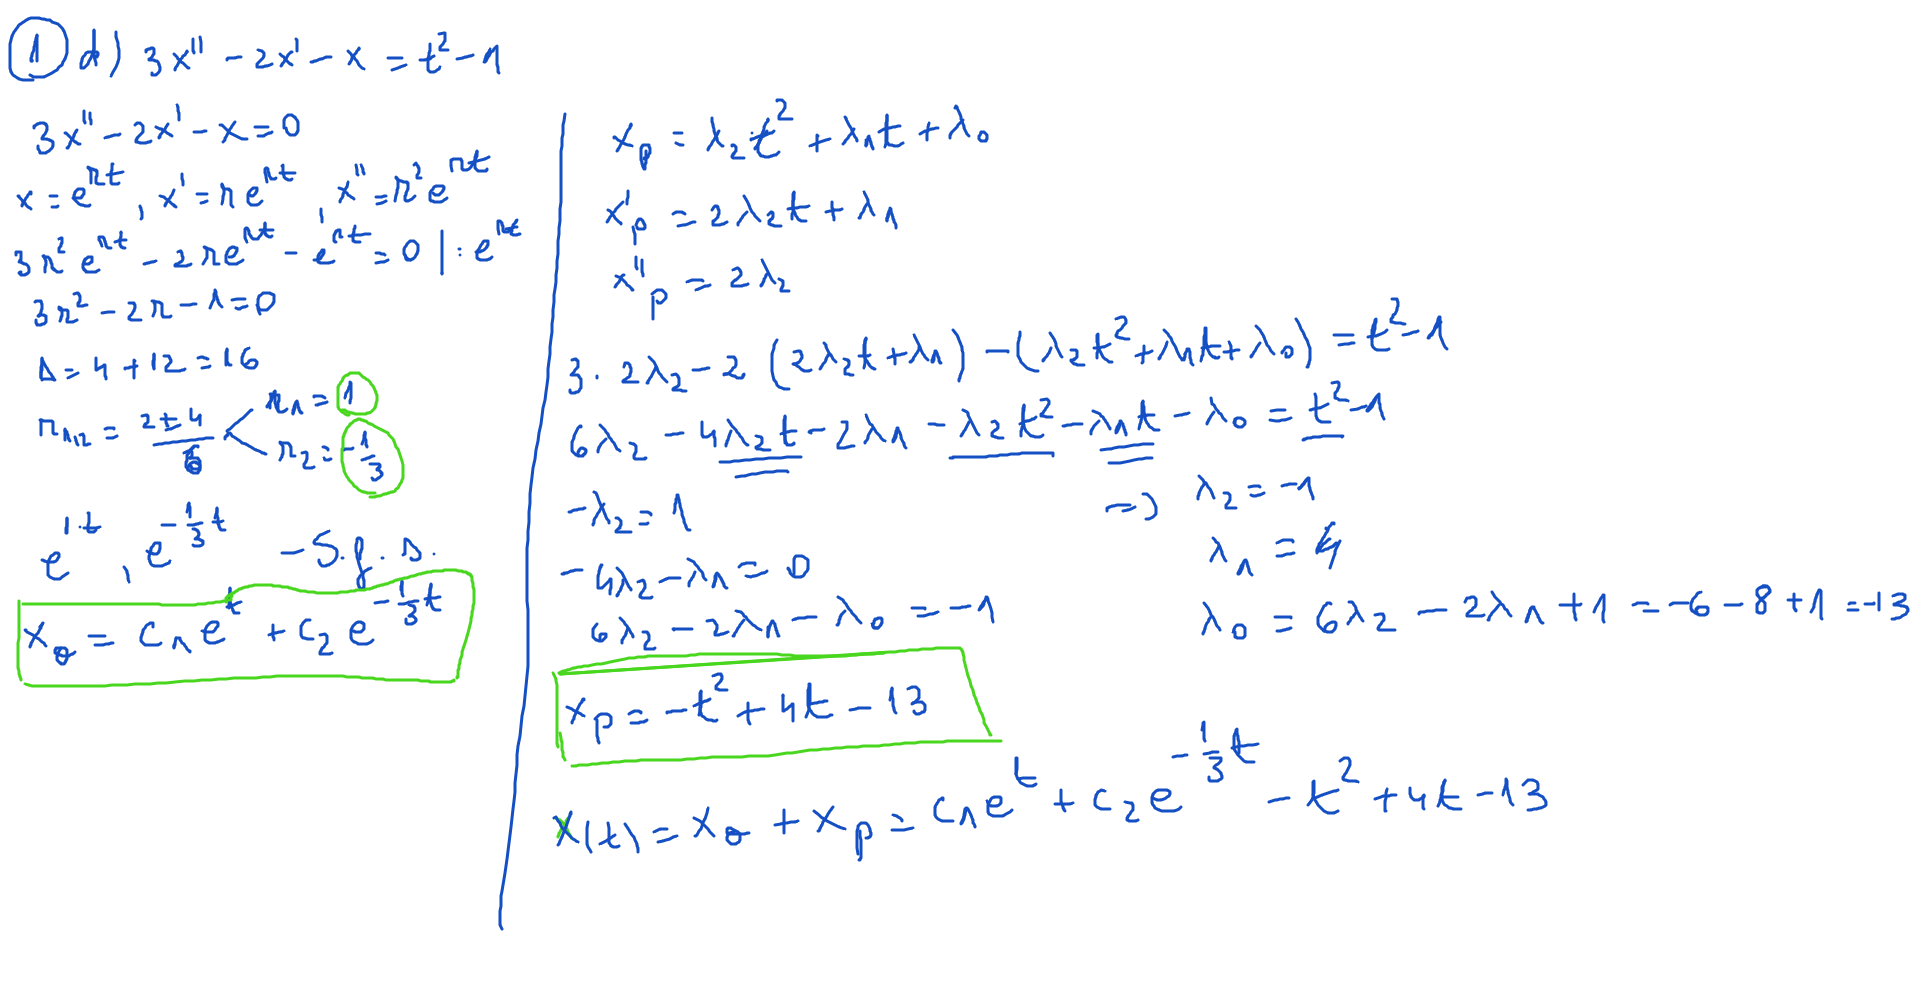 ① d) 3x'' - 2x' - x = t² - 1
3x'' - 2x' - x = 0
x = e^{rt}, x' = re^{rt}, x'' = r²e^{rt}
3r²e^{rt} - 2re^{rt} - e^{rt} = 0 | : e^{rt}
3r² - 2r - 1 = 0
Δ = 4 + 12 = 16
r₁,₂ = (2 ± 4)/6 < r₁ = 1
r₂ = -1/3
e^{1·t}, e^{-1/3 t} - S.f.s.
x₀ = c₁e^t + c₂e^{-1/3 t}
x_p = λ₂t² + λ₁t + λ₀
x'_p = 2λ₂t + λ₁
x''_p = 2λ₂
3·2λ₂ - 2(2λ₂t + λ₁) - (λ₂t² + λ₁t + λ₀) = t² - 1
6λ₂ - 4λ₂t - 2λ₁ - λ₂t² - λ₁t - λ₀ = t² - 1
-λ₂ = 1 => λ₂ = -1
-4λ₂ - λ₁ = 0 λ₁ = 4
6λ₂ - 2λ₁ - λ₀ = -1 λ₀ = 6λ₂ - 2λ₁ + 1 = -6 - 8 + 1 = -13
x_p = -t² + 4t - 13
x(t) = x₀ + x_p = c₁e^t + c₂e^{-1/3 t} - t² + 4t - 13